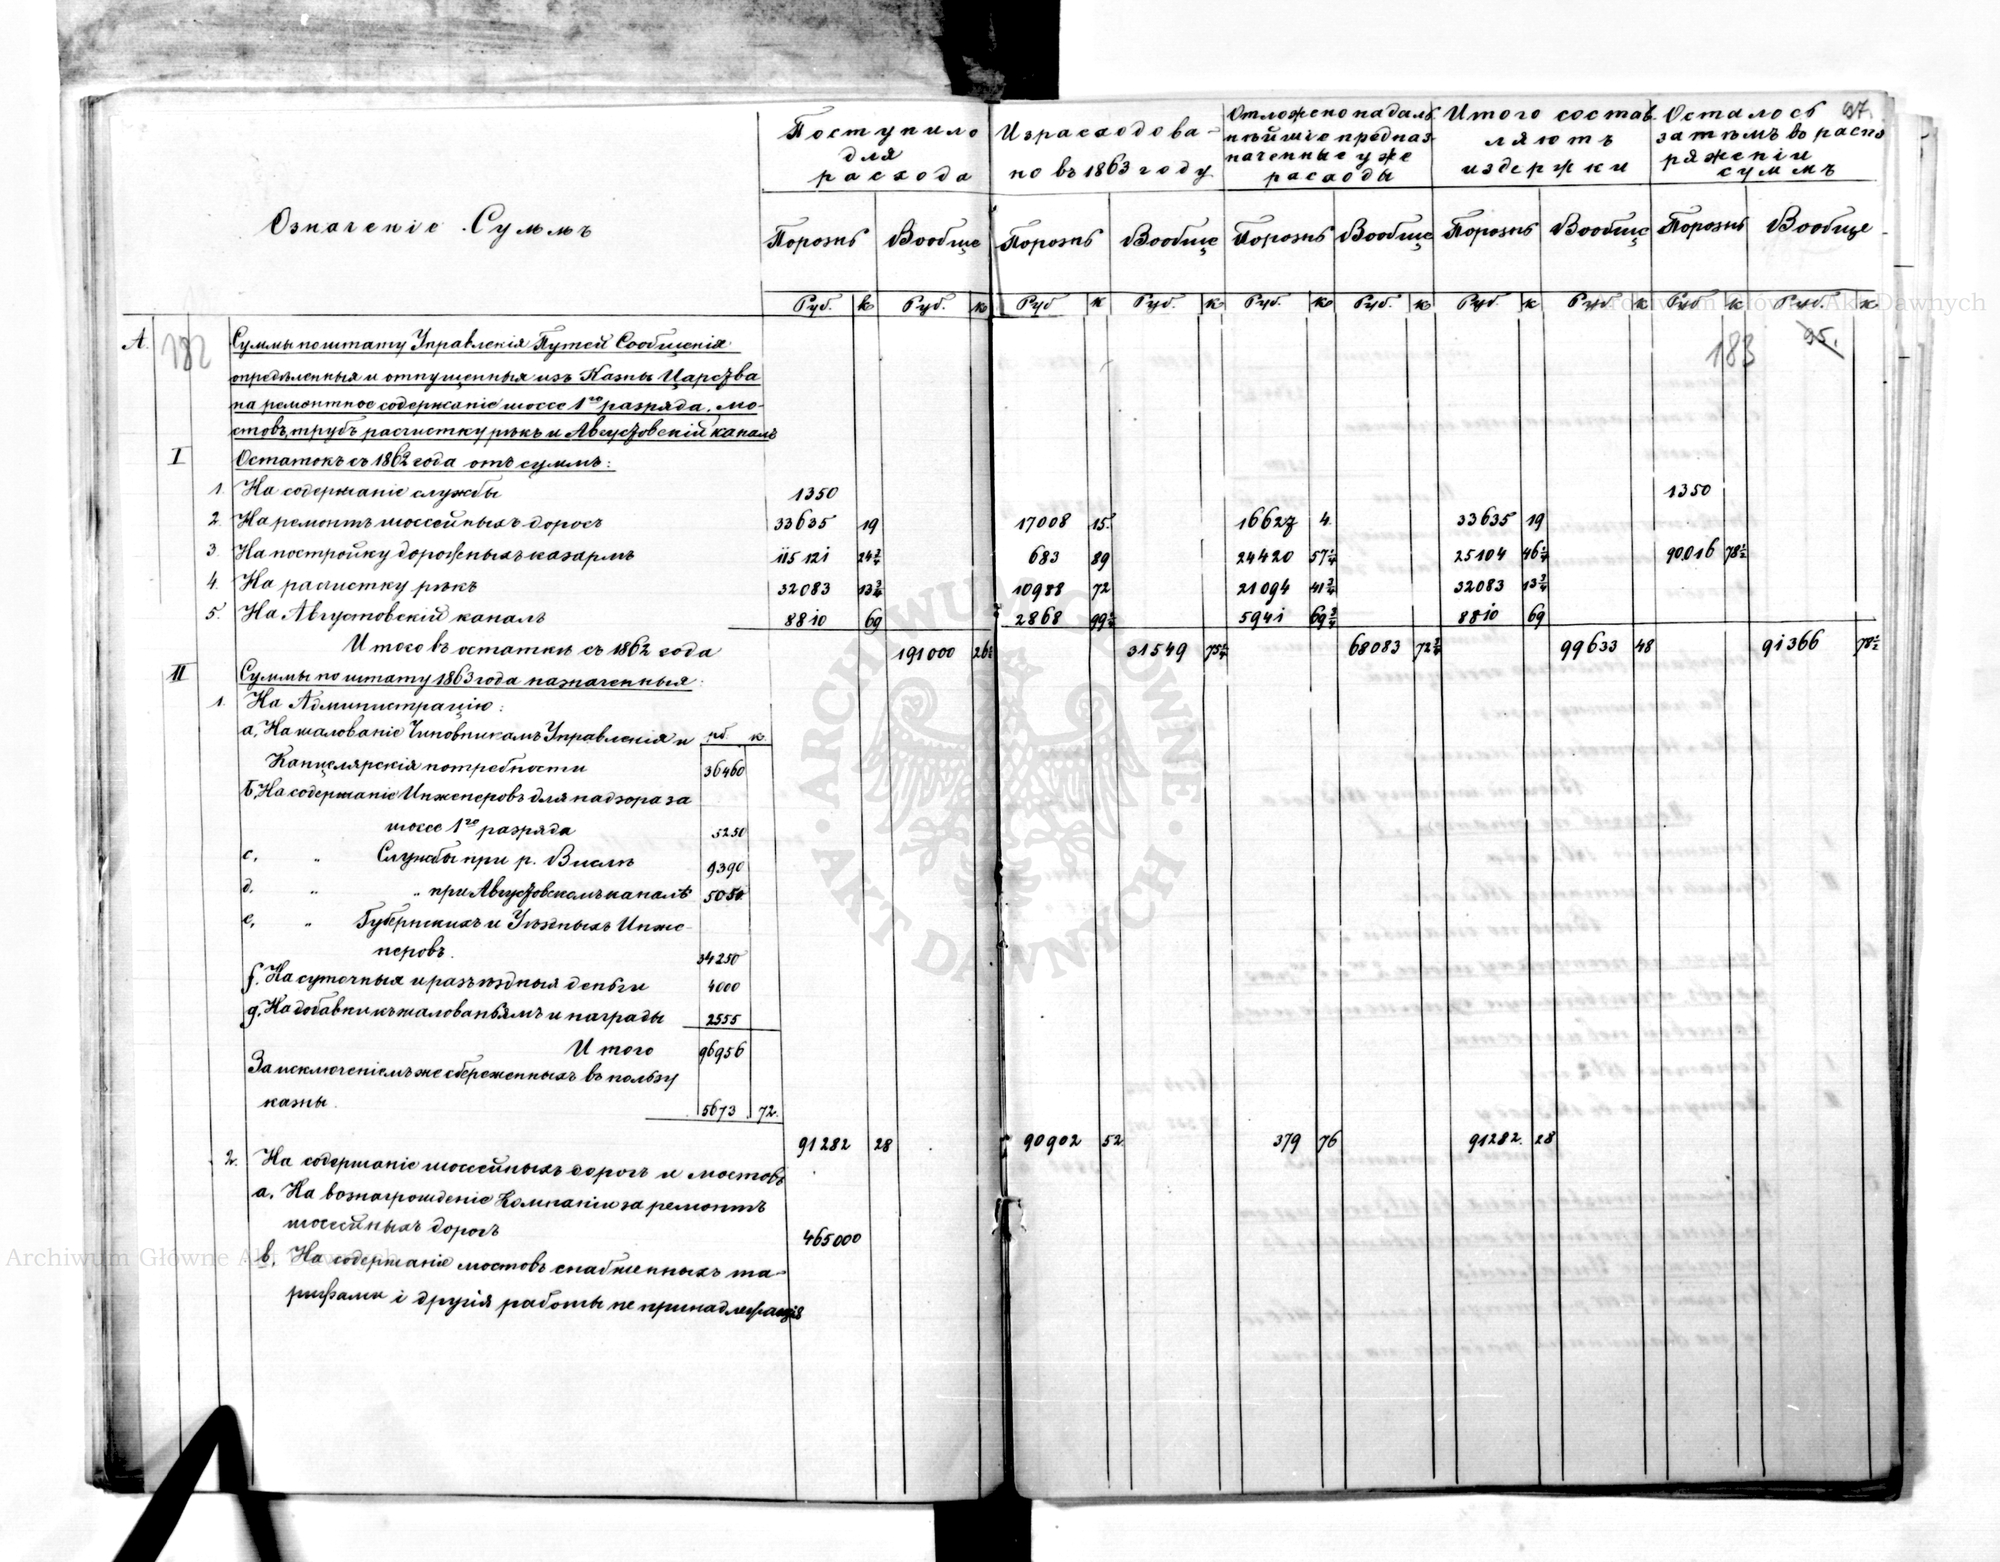 97.
Поступило для расхода
Израсходовано въ 1863 году
Отложено на дальнѣйшіе предназначенные уже расходы
Итого составляютъ издержки
Осталось затѣмъ въ распоряженіи суммъ
Означеніе Суммъ
Порознь Вообще Порознь Вообще Порознь Вообще Порознь Вообще Порознь Вообще
Руб. к Руб. к Руб к Руб. к Руб. к Руб. к Руб. к Руб. к Руб к Руб. к
182
183
95.
А. Суммы по штату Управленія Путей Сообщенія
опредѣленныя и отпущенныя изъ Казны Царства
на ремонтное содержаніе шоссе 1го разряда, мо-
стовъ, трубъ расчистку рѣкъ и Августовскій каналъ
I Остатокъ съ 1862 года отъ суммъ:
1. На содержаніе службы 1350 1350
2. На ремонтъ шоссейныхъ дорогъ 33635 19 17008 15 16627 4 33635 19
3. На постройку дорожныхъ казармъ 115121 24¾ 683 89 24420 57¼ 25104 46¼ 90016 78½
4. На расчистку рѣкъ 32083 13¾ 10988 72 21094 41¾ 32083 13¾
5. На Августовскій каналъ 8810 69 2868 99¼ 5941 69¾ 8810 69
Итого въ остаткѣ съ 1862 года 191000 26½ 31549 75¼ 68083 72¾ 99633 48 91366 78½
II Суммы по штату 1863 года назначенныя:
1. На Администрацію:
а, На жалованіе Чиновникамъ Управленія и рб. к.
Канцелярскія потребности 36460
б, На содержаніе Инженеровъ для надзора за
шоссе 1го разряда 5250
с, " Службы при р. Вислѣ 9390
d. " " при Августовскомъ каналѣ 5050
е, " Губернскихъ и Уѣздныхъ Инже-
неровъ. 34250
f. На суточныя и разъѣздныя деньги 4000
g. На добавки къ жалованьямъ и награды 2555
Итого 96956
За исключеніемъ же сбереженныхъ въ пользу
казны. 5673 72.
91282 28 90902 52 379 76 91282. 28
2. На содержаніе шоссейныхъ дорогъ и мостовъ
а. На вознагражденіе Компаніи за ремонтъ
шоссейныхъ дорогъ 465000
b. На содержаніе мостовъ снабженныхъ та-
рифами і другія работы не принадлежащія
ARCHIWUM GŁÓWNE AKT DAWNYCH
Archiwum Główne Akt Dawnych
Archiwum Główne Akt Dawnych